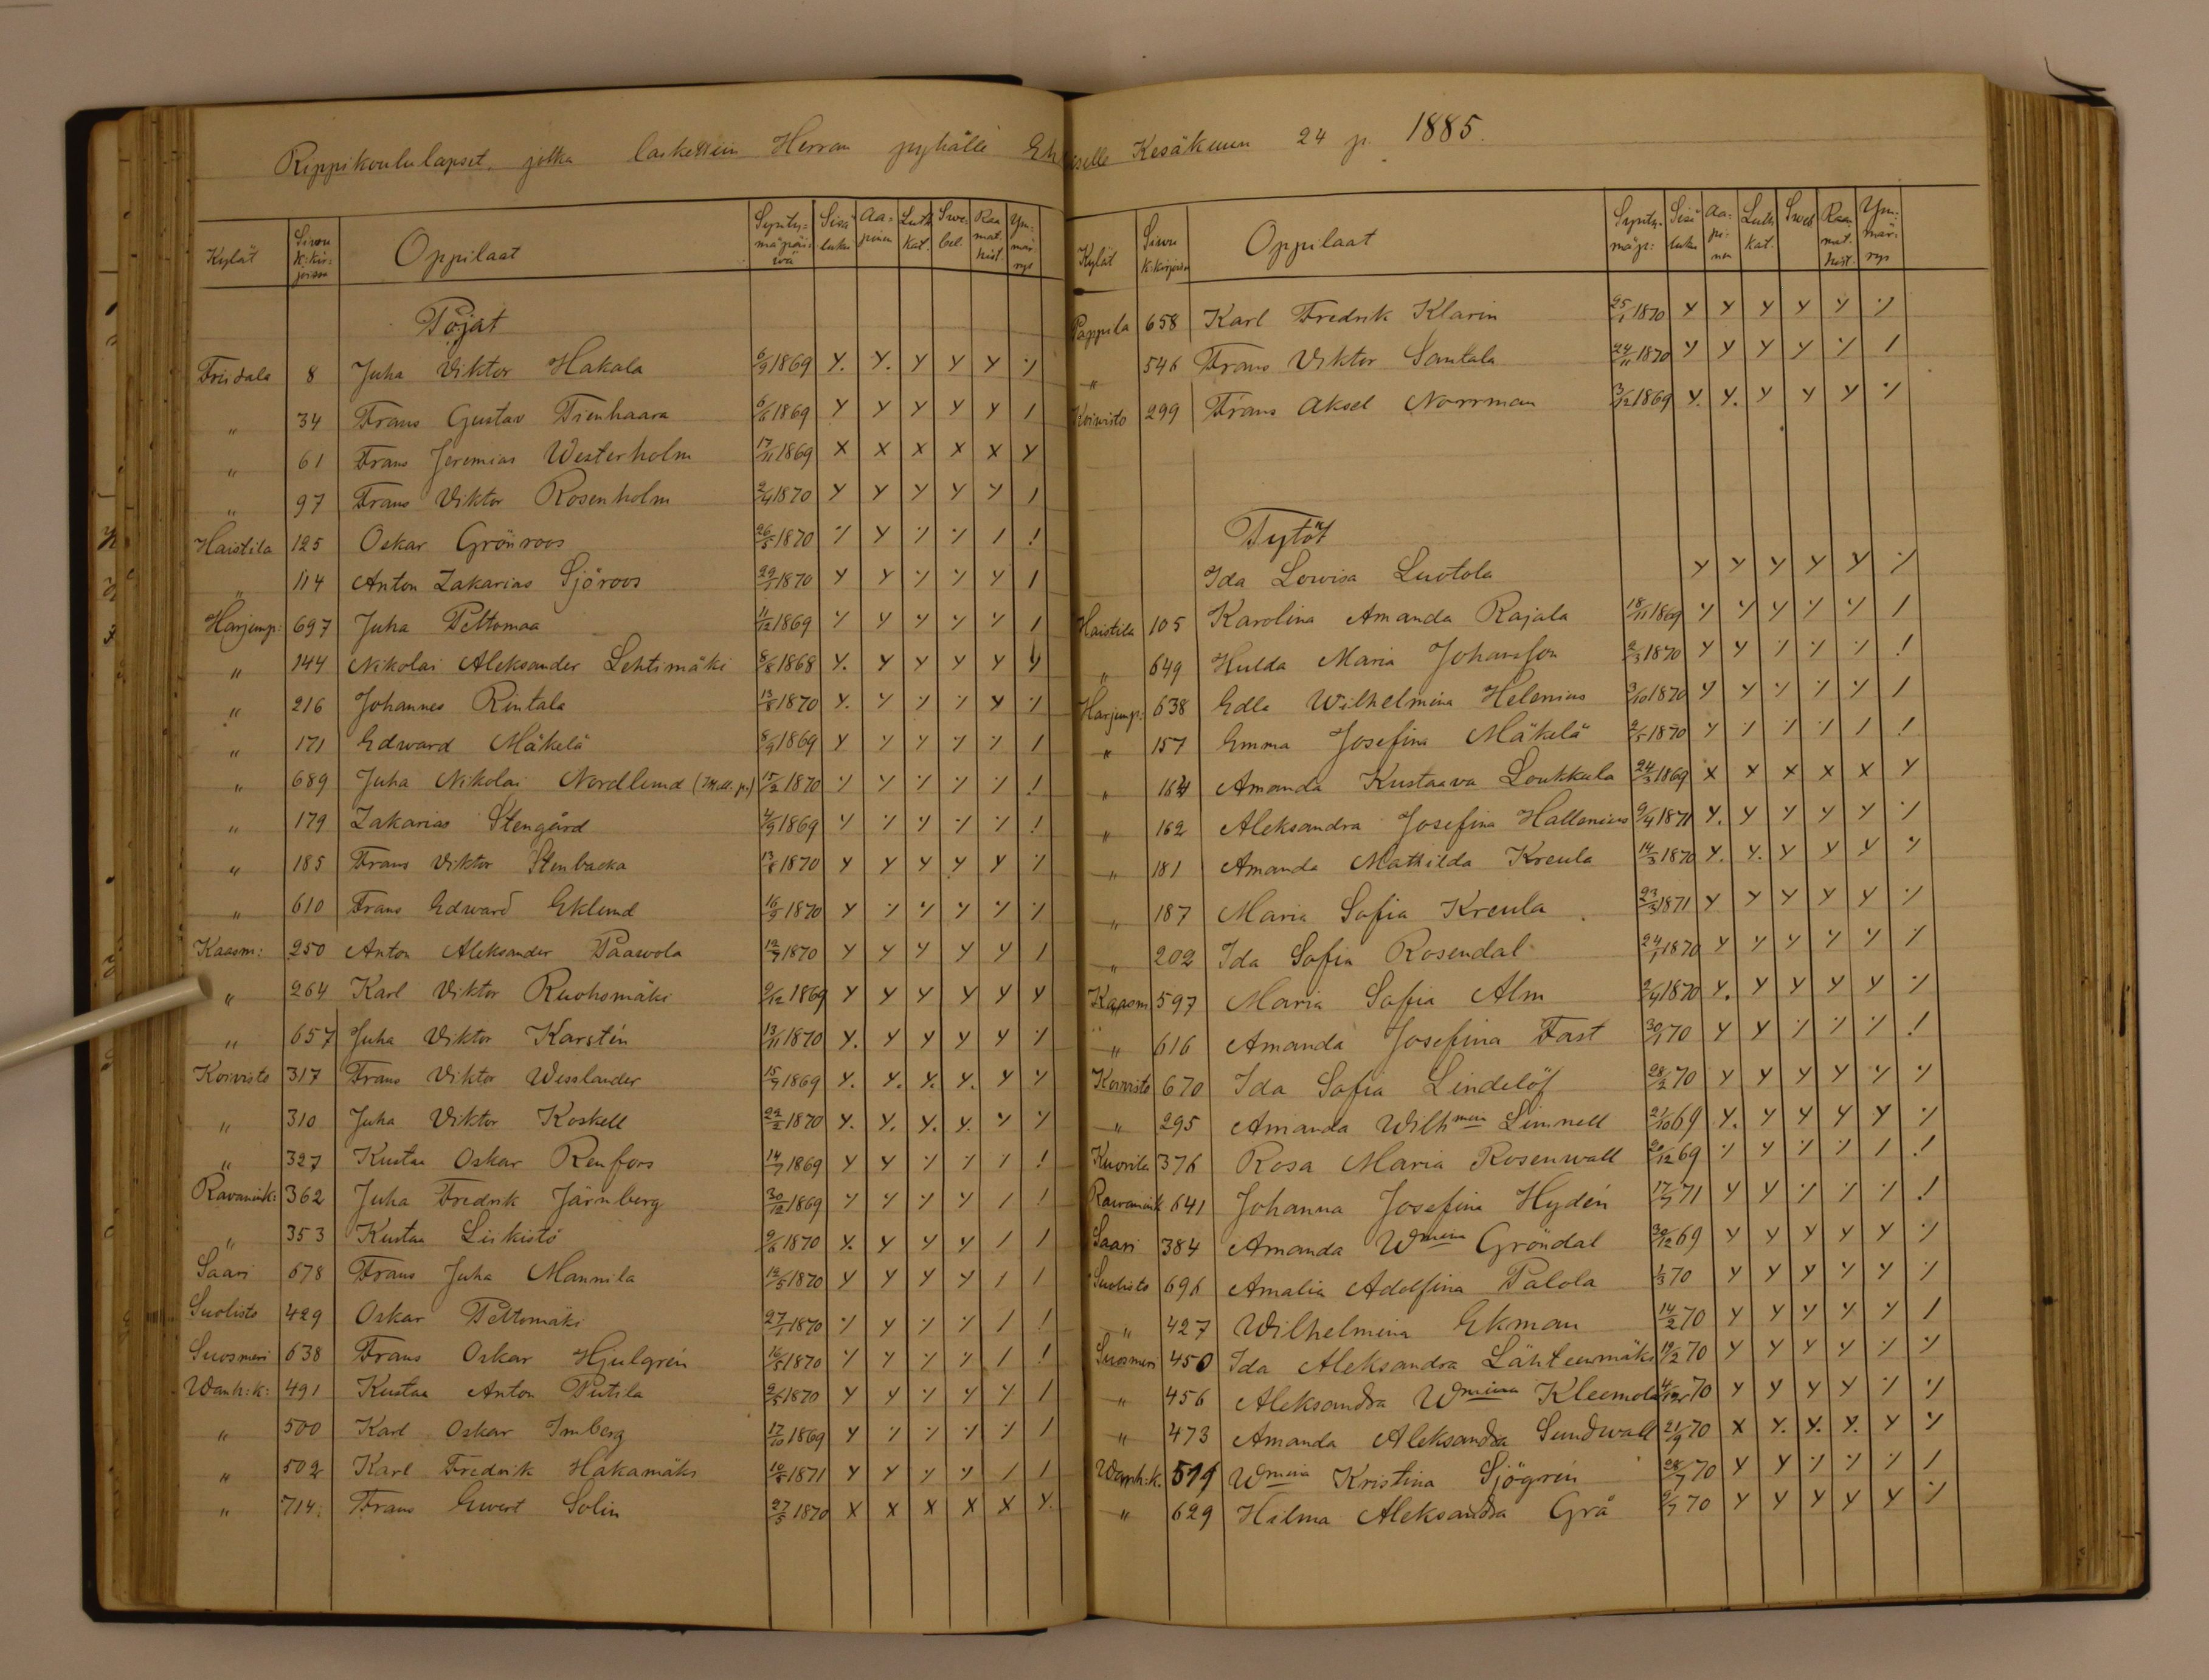 Rippikoululapset, jotka laskettiin Herran pyhälle Ehtoiselle Kesäkuun 24 p. 1885.
Kylät Sivu k:kirjassa Oppilaat Syntymäpäivä Sisäluku Aapinen Luth. Kat. Swebel. Raamat. hist. Ymmärrys
Pojat
Friidala 8 Juha Viktor Hakala 6/9 1869
" 34 Frans Gustav Tienhaara 6/6 1869
" 61 Frans Jeremias Westerholm 17/11 1869
" 97 Frans Viktor Rosenholm 2/4 1870
Haistila 125 Oskar Grönroos 26/5 1870
" 114 Anton Zakarias Sjöroos 29/1 1870
Harjunp: 697 Juha Peltomaa 11/12 1869
" 144 Nikolai Aleksander Lehtimäki 8/8 1868
" 216 Johannes Rintala 13/8 1870
" 171 Edward Mäkelä 8/9 1869
" 689 Juha Nikolai Nordlund 15/2 1870
" 179 Zakarias Stengård 4/9 1869
" 185 Frans Viktor Stenbacka 13/8 1870
" 610 Frans Edward Eklund 16/9 1870
Kaasm: 250 Anton Aleksander Paawola 12/7 1870
" 264 Karl Viktor Ruohomäki 9/12 1869
" 657 Juha Viktor Karstén 13/11 1870
Koivisto 317 Frans Viktor Wesslander 15/7 1869
" 310 Juha Viktor Koskell 22/2 1870
" 327 Kustaa Oskar Renfors 14/7 1869
Ravanink: 362 Juha Fredrik Järnberg 30/12 1869
" 353 Kustaa Liikistö 9/6 1870
Saari 678 Frans Juha Mannila 12/5 1870
Suolisto 429 Oskar Peltomäki 27/1 1870
Suosmeri 638 Frans Oskar Hjulgrén 16/5 1870
Wanh:k: 491 Kustaa Anton Putila 2/5 1870
" 500 Karl Oskar Imberg 17/10 1869
" 502 Karl Fredrik Hakamäki 10/8 1871
" 714 Frans Ewert Solin 27/5 1870
Kylät Sivu k:kirjassa Oppilaat Syntymäp: Sisäluku Aapinen Luth. kat. Sweb Raamat. hist. Ymmärrys
Pappila 658 Karl Fredrik Klarin 25/1 1870
" 546 Frans Viktor Santala 24/11 1870
Koivisto 299 Frans Aksel Norrman 3/12 1869
Tytöt
Ida Lowisa Luotola
Haistila 105 Karolina Amanda Rajala 18/11 1869
" 649 Hulda Maria Johansson 2/3 1870
Harjunp: 638 Edla Wilhelmina Helenius 9/10 1870
" 157 Emma Josefina Mäkelä 2/5 1870
" 164 Amanda Kustaava Loukkula 24/3 1869
" 162 Aleksandra Josefina Hallenius 9/4 1871
" 181 Amanda Mathilda Kreula 14/3 1870
" 187 Maria Sofia Kreula 23/3 1871
" 202 Ida Sofia Rosendal 24/1 1870
Kaasm 597 Maria Sofia Alm 2/4 1870
" 616 Amanda Josefina Fast 30/1 70
Koivisto 670 Ida Sofia Lindelöf 28/2 70
" 295 Amanda Wilhmina Linnell 21/10 69
Kuorila 376 Rosa Maria Rosenwall 20/12 69
Rawanink 641 Johanna Josefina Hydén 17/7 71
Saari 384 Amanda Wmina Gröndal 30/12 69
Suolisto 696 Amalia Adolfina Palola 1/3 70
" 427 Wilhelmina Ekman 14/2 70
Suosmeri 450 Ida Aleksandra Lähteenmäki 19/2 70
" 456 Aleksandra Wmina Kleemola 4/12 70
" 473 Amanda Aleksandra Sundwall 21/9 70
Wanh:k. 519 Wmina Kristina Sjögrén 28/7 70
" 629 Hilma Aleksandra Grå 9/7 70